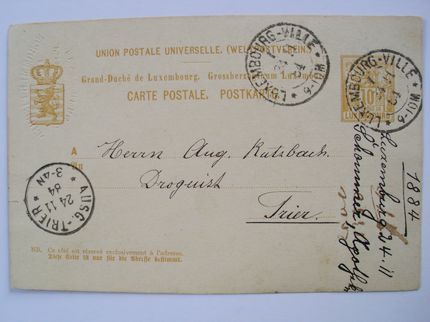 UNION POSTALE UNIVERSELLE. (WELTPOSTVEREIN)
Grand-Duché de Luxembourg. Grossherzogthum Luxemburg
CARTE POSTALE. POSTKARTE
LUXEMBOURG-VILLE * 6-10M *
LUXEMBOURG-VILLE * 6-10M *
10
A
An
Herrn Aug. Ratzbach
Droguist
Trier
AUSG.-TRIER *
24 11
84
3-4N
NB. Ce côté est réservé exclusivement à l'adresse.
Diese Seite ist nur für die Adresse bestimmt.
1884
Luxemburg 24.11
Schommer, Apoth